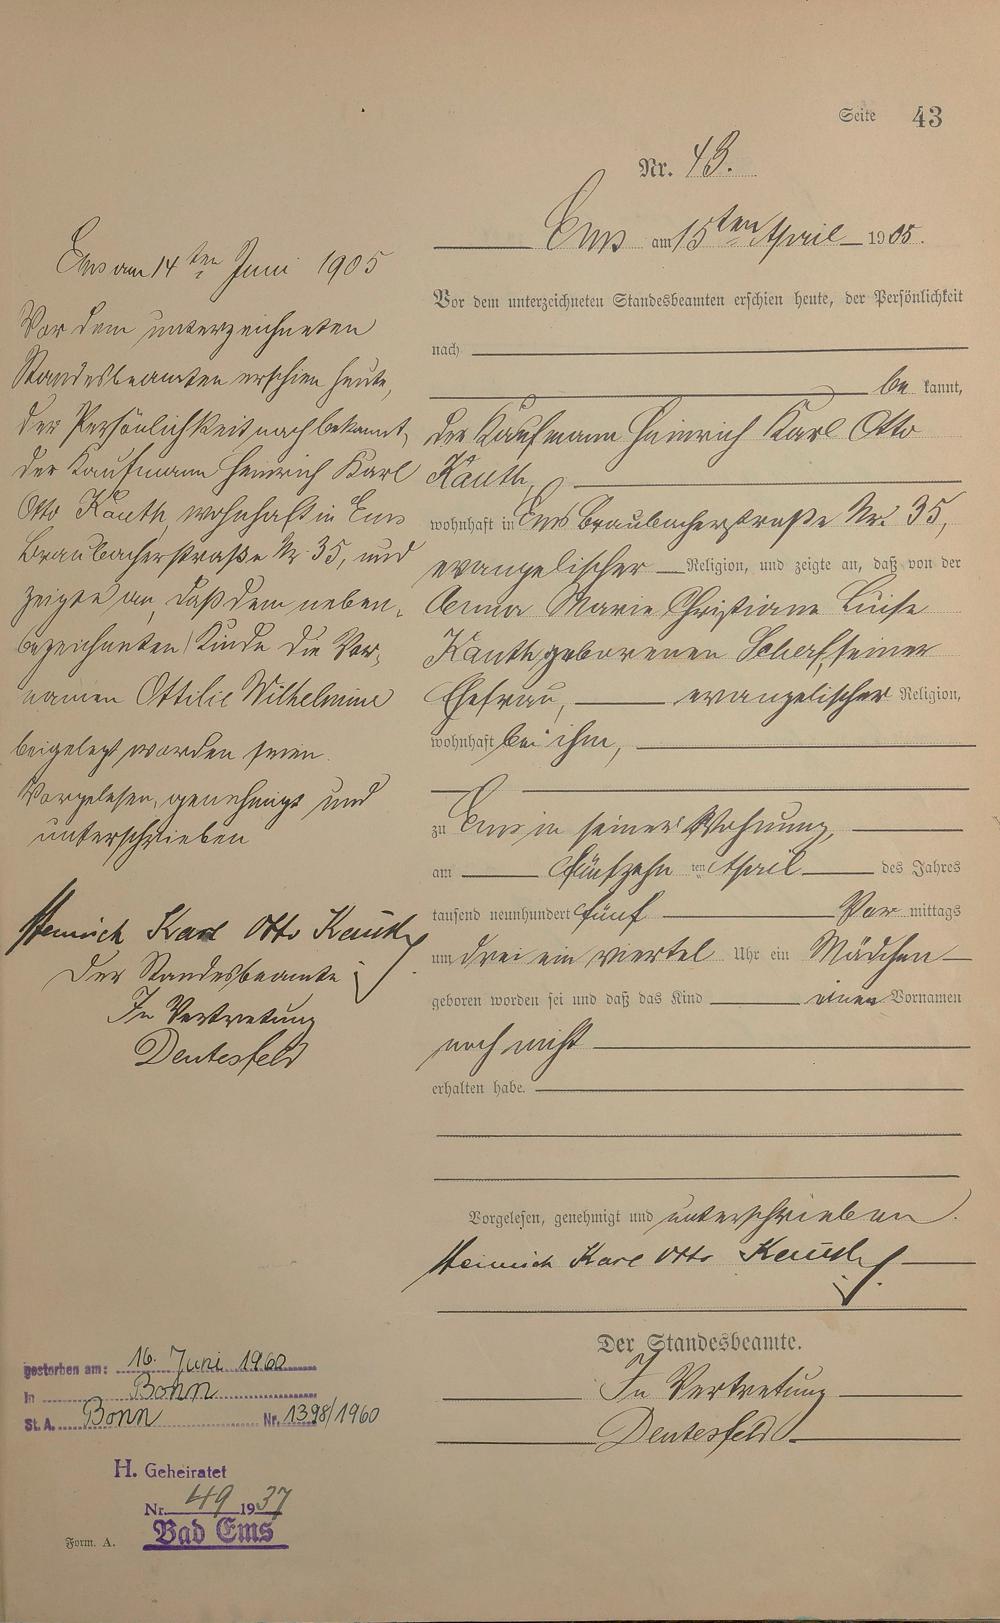 Seite 43
Nr. 43.
Ems am 15ten April 1905.
Vor dem unterzeichneten Standesbeamten erschien heute, der Persönlichkeit
nach
be kannt,
der Kaufmann Heinrich Karl Otto
Kauth,
wohnhaft in Ems Braubacherstraße Nr. 35,
evangelischer Religion, und zeigte an, daß von der
Anna Marie Christiane Luise
Kauth, geborenen Scherf, seiner
Ehefrau, evangelischer Religion,
wohnhaft bei ihm,
zu Ems in seiner Wohnung,
am fünfzehn ten April des Jahres
tausend neunhundert fünf Vor mittags
um drei ein viertel Uhr ein Mädchen
geboren worden sei und daß das Kind einen Vornamen
noch nicht
erhalten habe.
Vorgelesen, genehmigt und unterschrieben.
Heinrich Karl Otto Kauth
Der Standesbeamte.
In Vertretung
Deutesfeld
Ems am 14ten Juni 1905
Vor dem unterzeichneten
Standesbeamten erschien heute,
der Persönlichkeit nach bekannt,
der Kaufmann Heinrich Karl
Otto Kauth, wohnhaft in Ems
Braubacherstraße Nr. 35, und
zeigte an, daß dem neben-
bezeichneten Kinde die Vor-
namen Ottilie Wilhelmine
beigelegt worden seien.
Vorgelesen, genehmigt und
unterschrieben
Heinrich Karl Otto Kauth
Der Standesbeamte
In Vertretung
Deutesfeld
gestorben am: 16. Juni 1960
in Bonn
St. A. Bonn Nr. 1398/1960
H. Geheiratet
Nr. 49 1937
Bad Ems
Form. A.